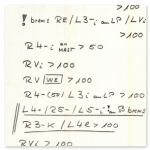 >100
! brems RE/L3-i an LP/LVi
>100
R4-i an MAST >50
RVi >100
RV WE >100
R4-(50) L3i an LP >100
L4+/R5-/L5-i! an B brems
R3-K/L4e >100
RVi >100